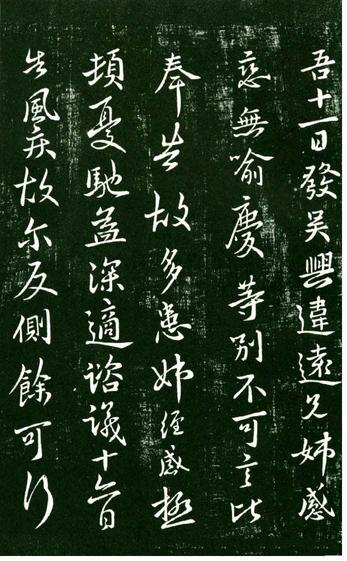 吾十一日發吳興違遠兄姊感
戀無喻慶等別不可言比
奉告故多患姊經感極
頓憂馳益深適諮議十六日
告風疾故尔反側餘可行